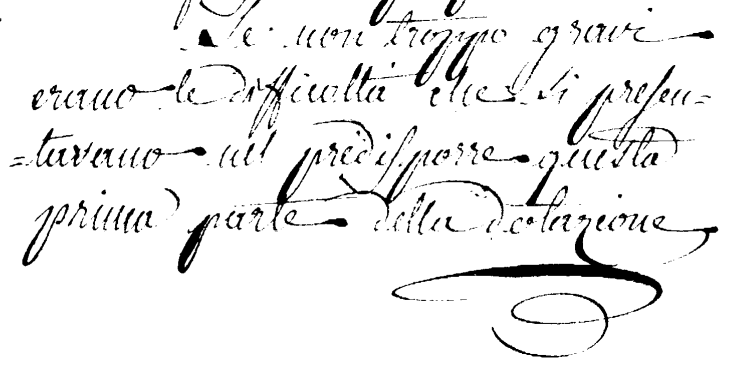 Se non troppo gravi
erano le difficoltà che si presen=
=tavano nel predisporre questa
prima parte della dotazione